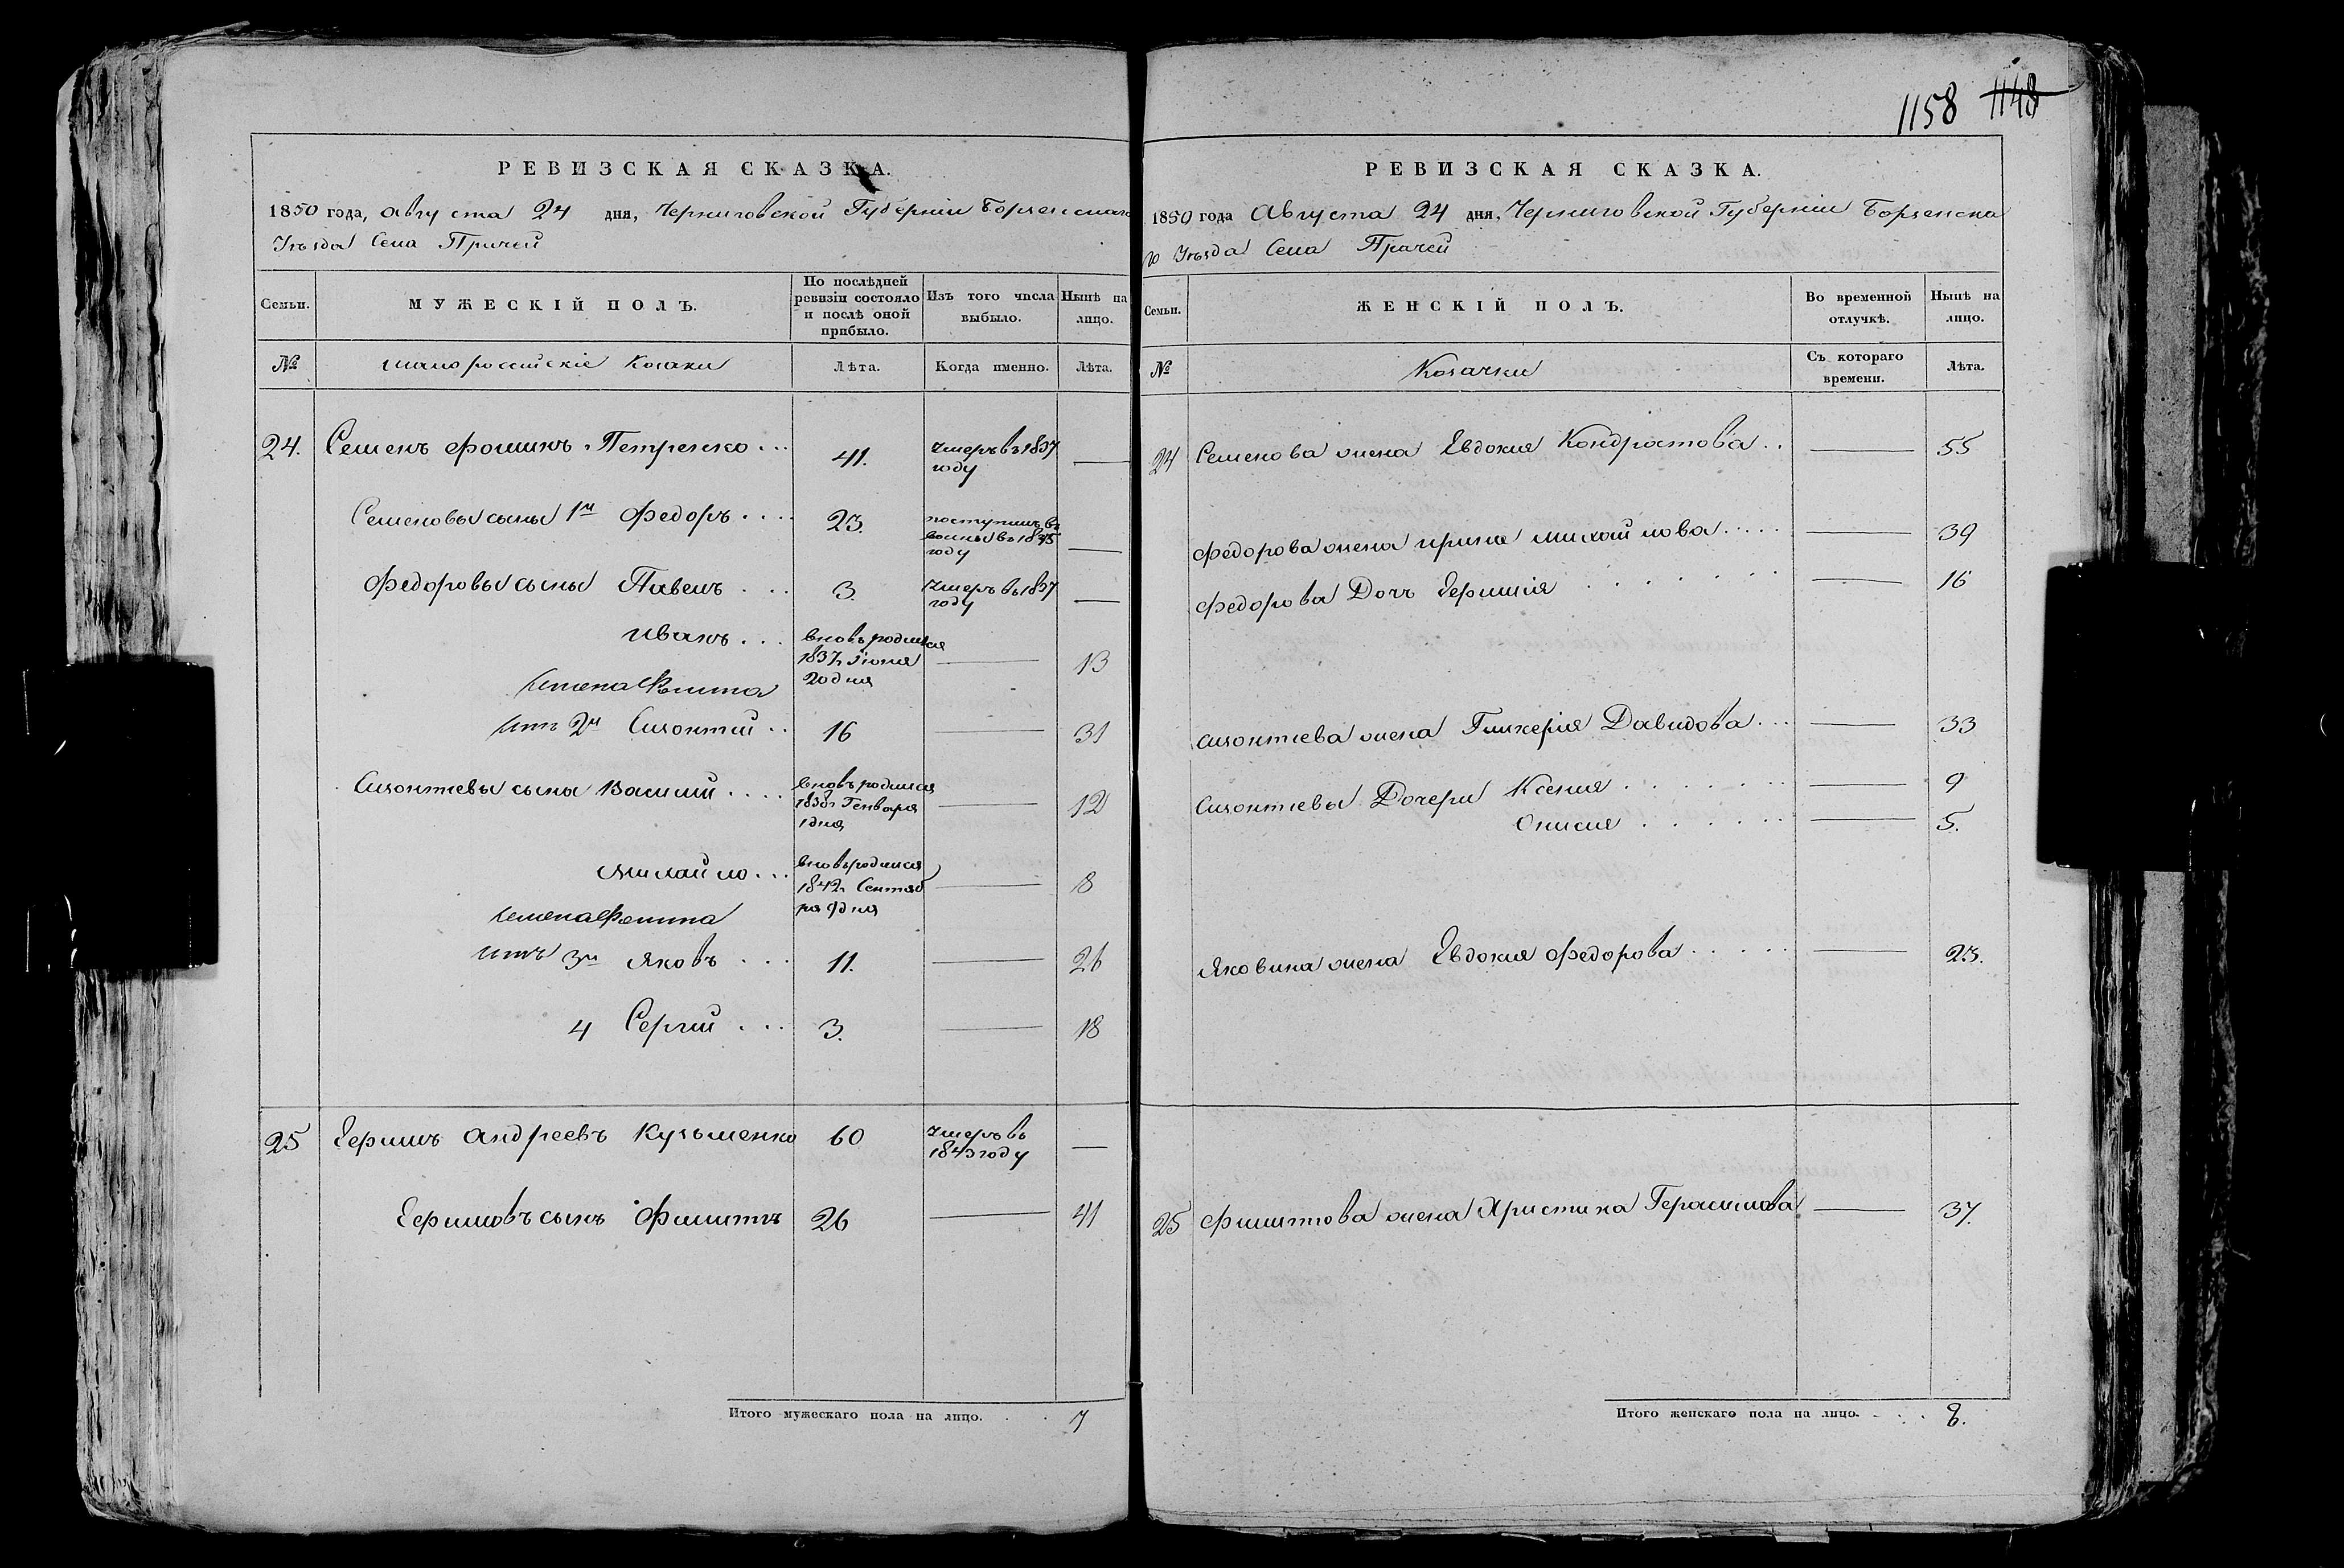 1158 1148
РЕВИЗСКАЯ СКАЗКА.
1850 года, Августа 24 дня, Черниговской Губерніи Борзенскаго
Уѣзда Села Прачей
Семьи.
МУЖЕСКІЙ ПОЛЪ.
По послѣдней ревизіи состояло и послѣ оной прибыло.
Изъ того числа выбыло.
Нынѣ на лицо.
№
малороссійскіе Козаки
Лѣта.
Когда именно.
Лѣта.
24. Семенъ Фоминъ Петренко ... 41. Умеръ въ 1837 году —
Семеновы сыны 1й Федоръ .... 23. поступилъ въ 1845 году —
Федоровы сыны Павелъ ... 3. Умеръ въ 1837 году —
Иванъ ... вновь родился 1837 Іюня 20 дня — 13
Семена Фомина
2й Силоктій .. 16 — 31
Василій .... вновь родился 1838 Генваря 1 дня — 12
Михайло ... вновь родился 1842 Сентября 8
Семена Фомина
3й Яковъ ... 11. — 26
4 Сергій ... 3. — 18
25 Ефимъ Андреевъ Кузьменко 60 Умеръ въ 1843 году —
Ефимовъ сынъ Филиптъ 26 — 41
Итого мужескаго пола на лицо. . . 7
РЕВИЗСКАЯ СКАЗКА.
1850 года Августа 24 дня, Черниговской Губерніи Борзенска
го Уѣзда Села Прачей
Семьи.
ЖЕНСКІЙ ПОЛЪ.
Во временной отлучкѣ.
Нынѣ на лицо.
№
Козачки
Съ котораго времени.
Лѣта.
24 Семенова жена Евдокия Кондратова .. — 55
Федорова жена Ирина Михайлова ..... — 39
Федорова Дочъ Ефимія — 16
жена Гликерія Давидова ... — 33
Дочери Ксения — 9
Онисия — 5.
Яковина жена Евдокия Федорова — 23.
25 жена Христина Герасимова — 37.
Итого женскаго пола на лицо. 8.